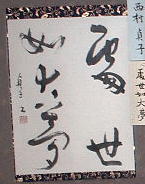 西村貞子
「處世如大夢」
處世
如大夢
貞子